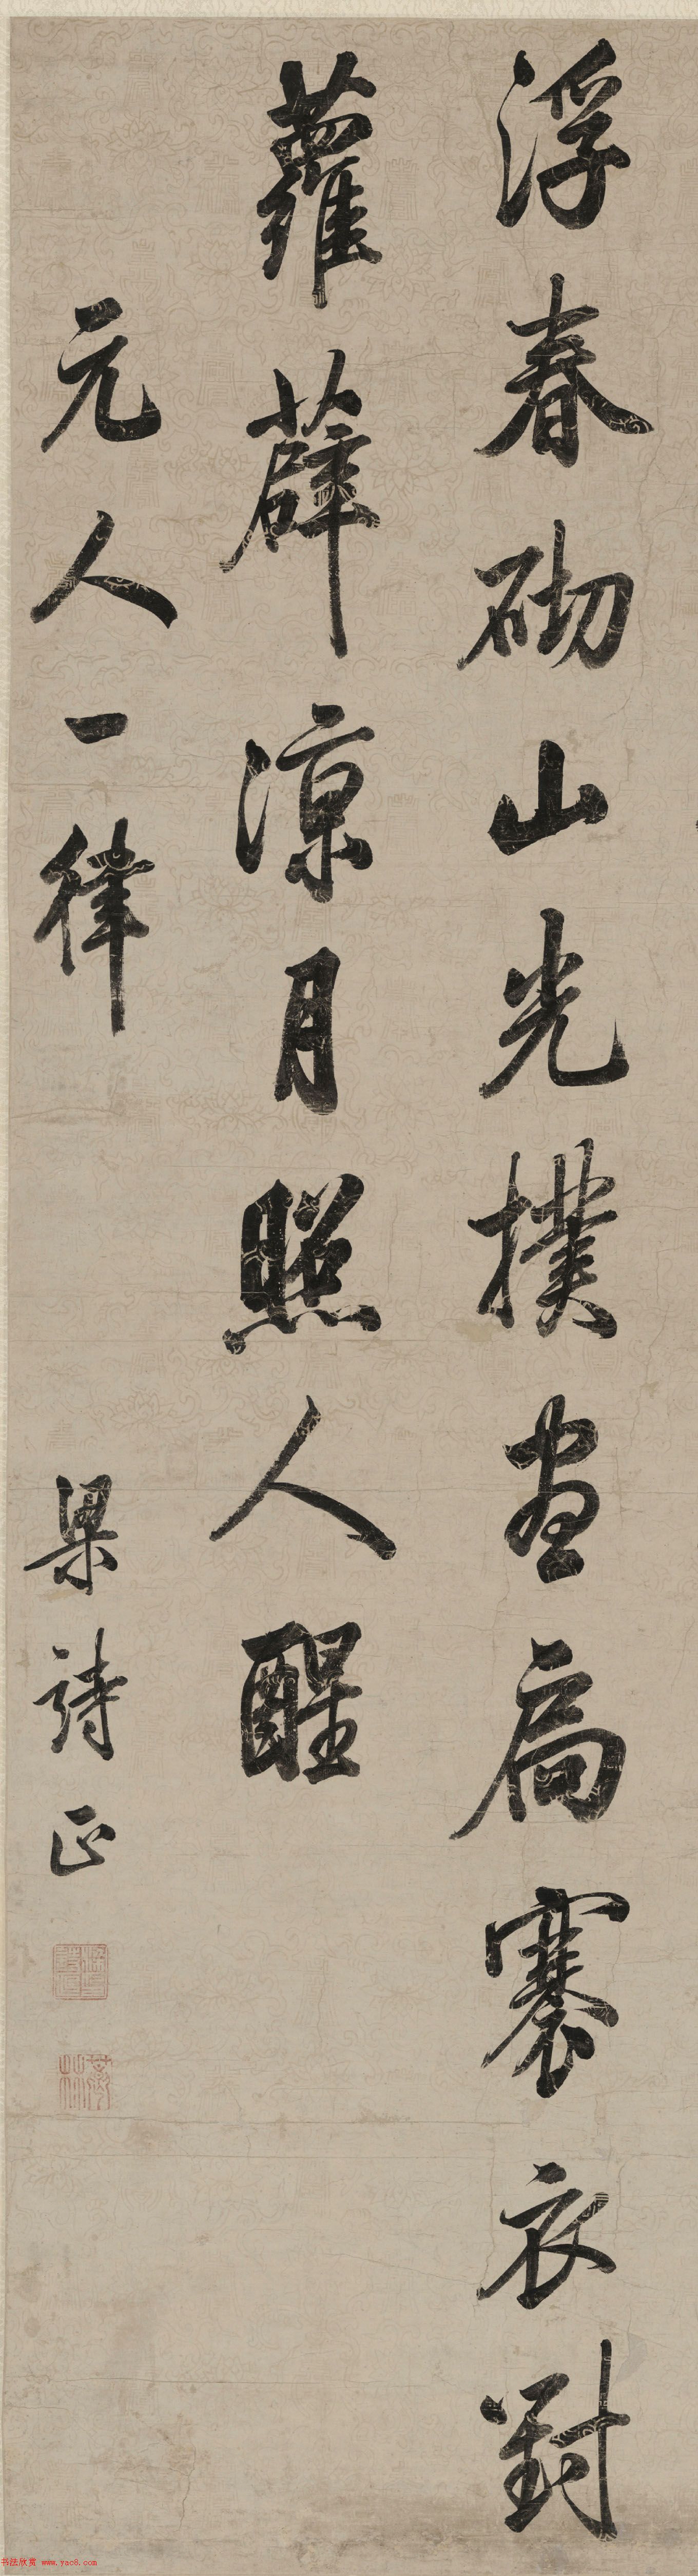 浮春砌山光撲畫扃褰衣對
蘿薜涼月照人醒
元人一律
梁詩正
书法欣赏 www.yac8.com